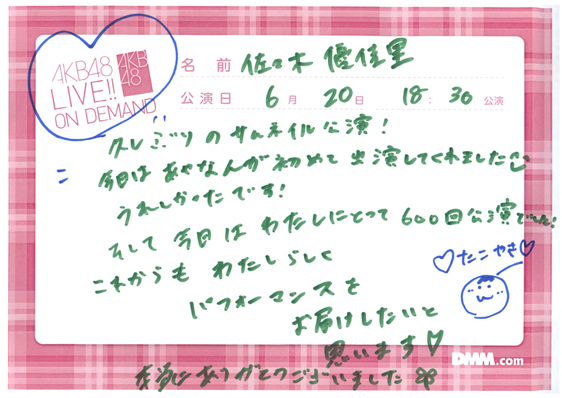 AKB48
LIVE!!
ON DEMAND
AKB
48
名前 佐々木 優佳里
公演日 6月 20日 18:30公演
久しぶりのサムネイル公演!
今日は あやなんが初めて出演してくれました
うれしかったです!
そして 今日は わたしにとって 600回公演でした!
これからも わたしらしく
パフォーマンスを
お届けしたいと
思います♡
本当にありがとうございました
♡たこやき♡
DMM.com